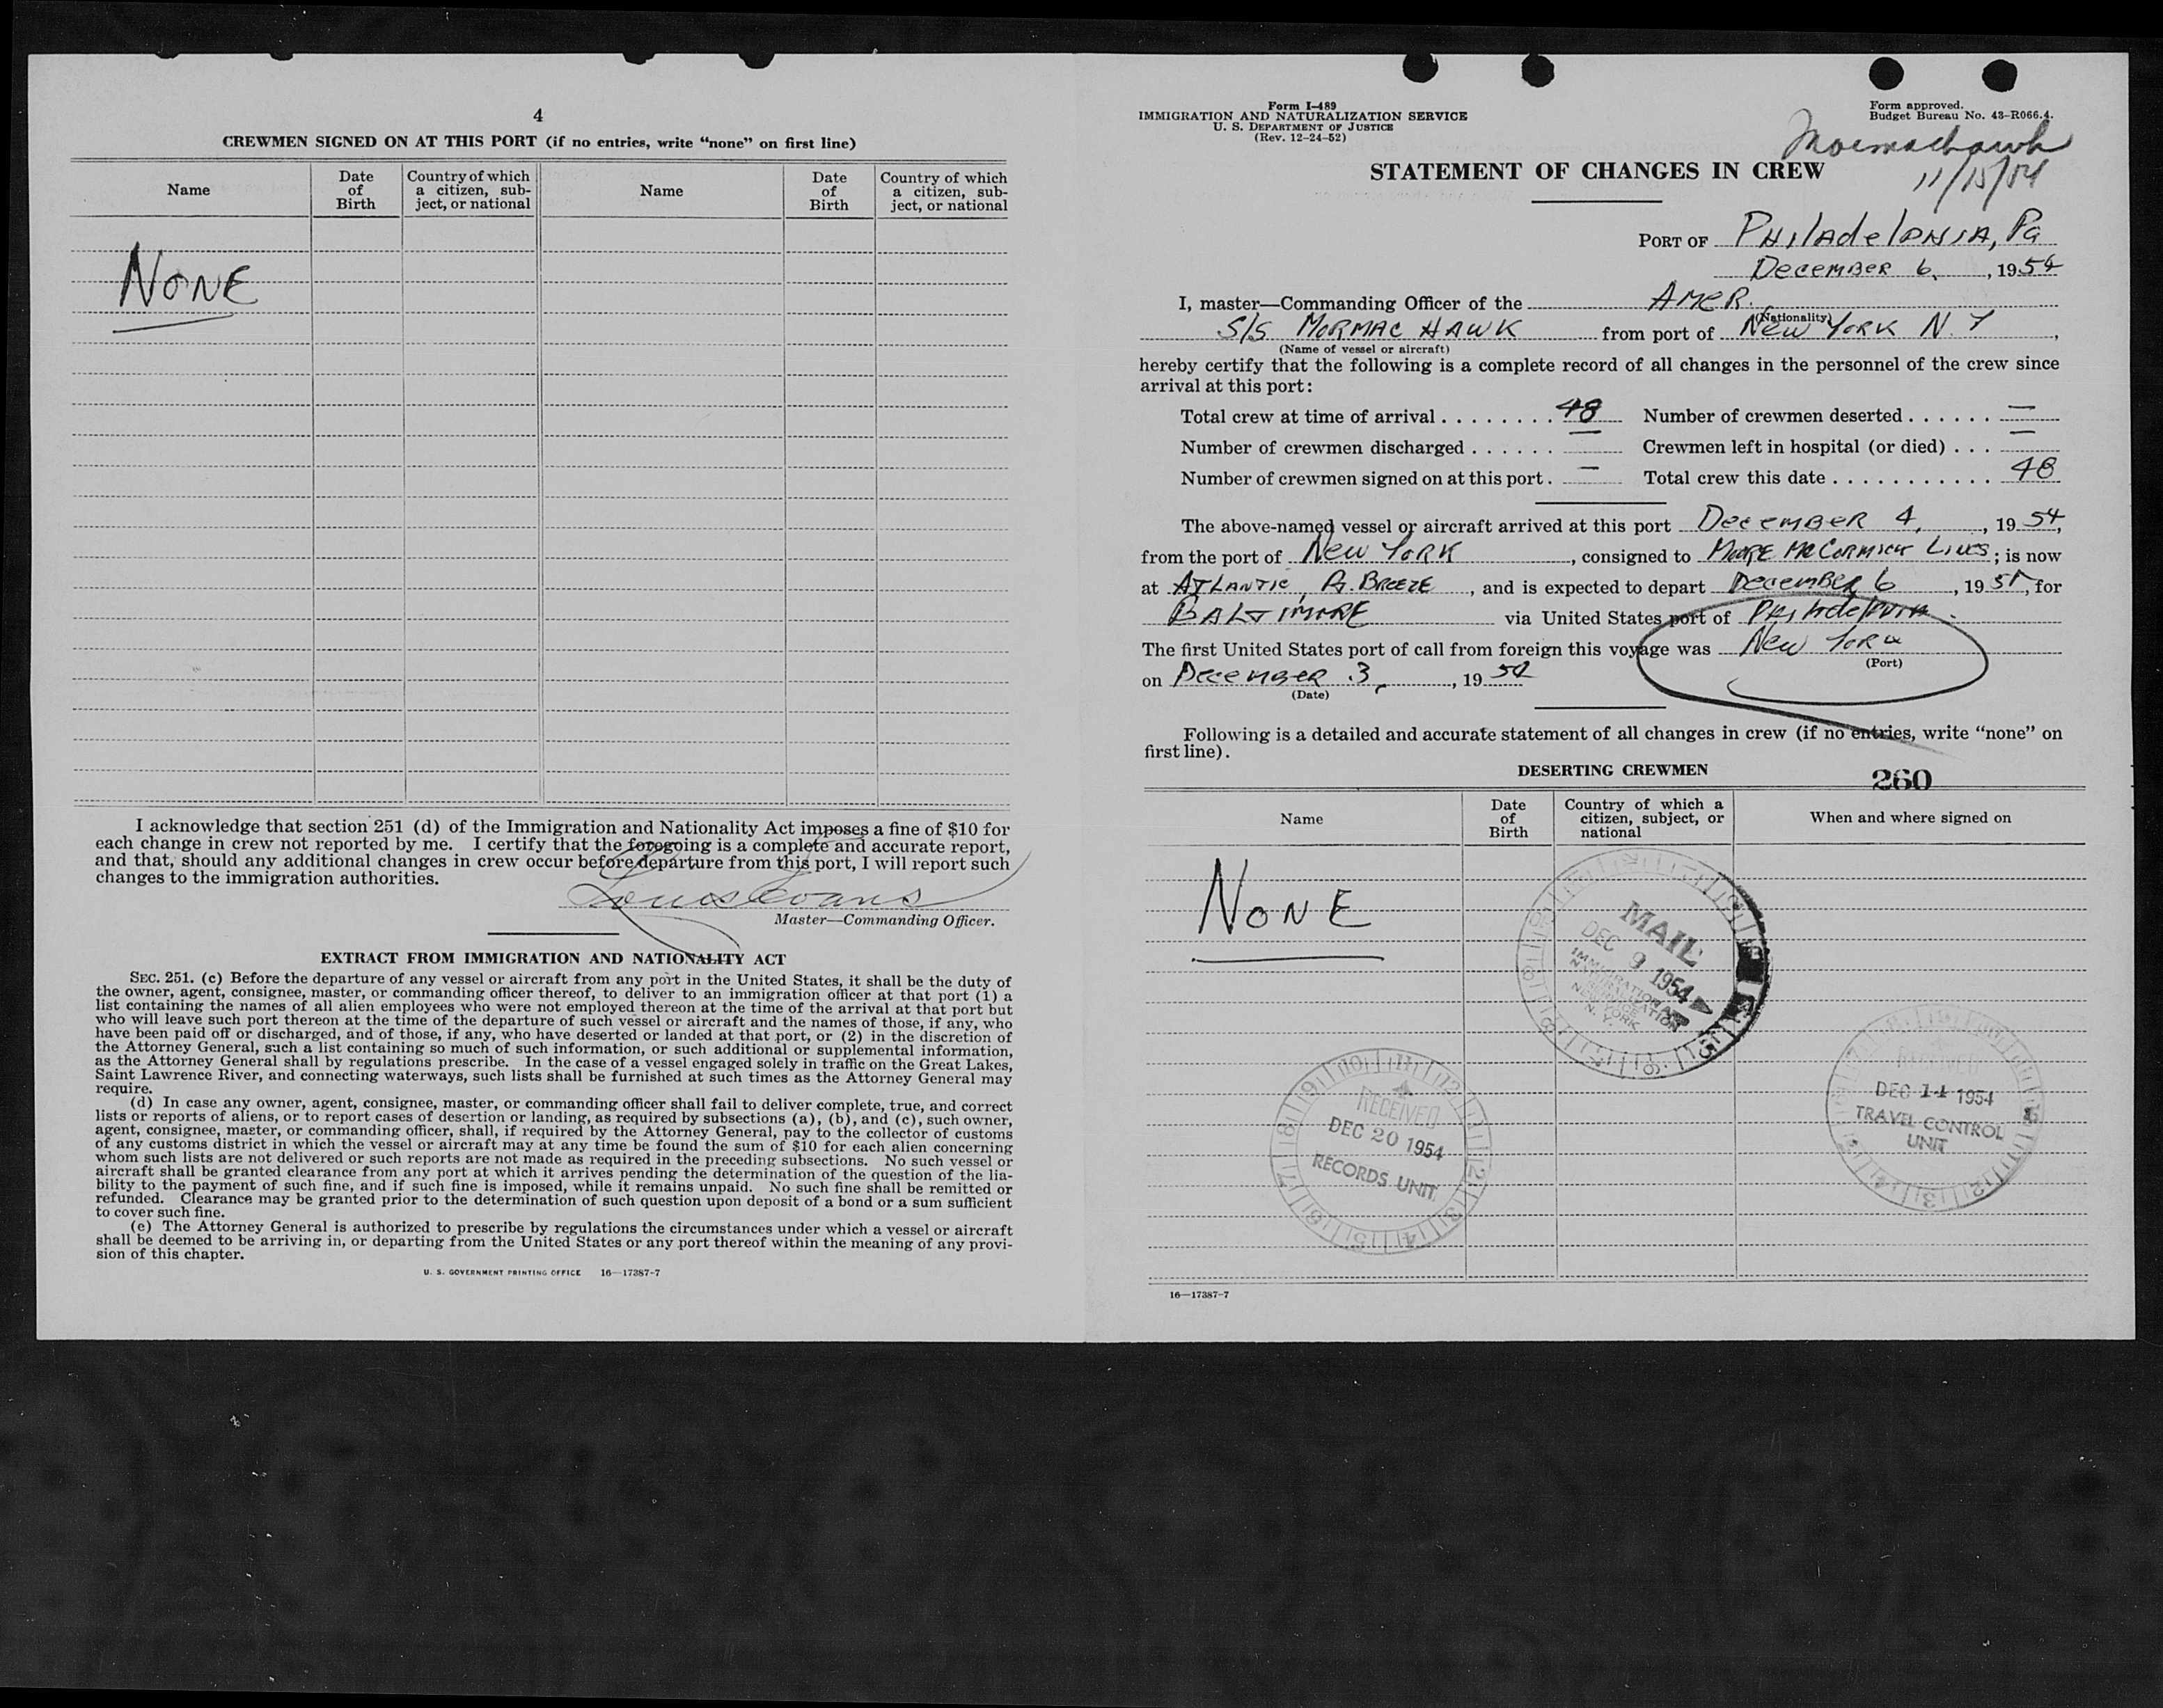 4
CREWMEN SIGNED ON AT THIS PORT (if no entries, write “none” on first line)
Name
Date of Birth
Country of which a citizen, subject, or national
Name
Date of Birth
Country of which a citizen, subject, or national
NONE
I acknowledge that section 251 (d) of the Immigration and Nationality Act imposes a fine of $10 for
each change in crew not reported by me. I certify that the foregoing is a complete and accurate report,
and that, should any additional changes in crew occur before departure from this port, I will report such
changes to the immigration authorities.
Louis Evans
Master—Commanding Officer.
EXTRACT FROM IMMIGRATION AND NATIONALITY ACT
SEC. 251. (c) Before the departure of any vessel or aircraft from any port in the United States, it shall be the duty of
the owner, agent, consignee, master, or commanding officer thereof, to deliver to an immigration officer at that port (1) a
list containing the names of all alien employees who were not employed thereon at the time of the arrival at that port but
who will leave such port thereon at the time of the departure of such vessel or aircraft and the names of those, if any, who
have been paid off or discharged, and of those, if any, who have deserted or landed at that port, or (2) in the discretion of
the Attorney General, such a list containing so much of such information, or such additional or supplemental information,
as the Attorney General shall by regulations prescribe. In the case of a vessel engaged solely in traffic on the Great Lakes,
Saint Lawrence River, and connecting waterways, such lists shall be furnished at such times as the Attorney General may
require.
(d) In case any owner, agent, consignee, master, or commanding officer shall fail to deliver complete, true, and correct
lists or reports of aliens, or to report cases of desertion or landing, as required by subsections (a), (b), and (c), such owner,
agent, consignee, master, or commanding officer, shall, if required by the Attorney General, pay to the collector of customs
of any customs district in which the vessel or aircraft may at any time be found the sum of $10 for each alien concerning
whom such lists are not delivered or such reports are not made as required in the preceding subsections. No such vessel or
aircraft shall be granted clearance from any port at which it arrives pending the determination of the question of the lia-
bility to the payment of such fine, and if such fine is imposed, while it remains unpaid. No such fine shall be remitted or
refunded. Clearance may be granted prior to the determination of such question upon deposit of a bond or a sum sufficient
to cover such fine.
(e) The Attorney General is authorized to prescribe by regulations the circumstances under which a vessel or aircraft
shall be deemed to be arriving in, or departing from the United States or any port thereof within the meaning of any provi-
sion of this chapter.
U. S. GOVERNMENT PRINTING OFFICE 16—17387-7
Form I-489
IMMIGRATION AND NATURALIZATION SERVICE
U. S. DEPARTMENT OF JUSTICE
(Rev. 12-24-52)
Form approved.
Budget Bureau No. 43-R066.4.
Mormachawk
11/15/54
STATEMENT OF CHANGES IN CREW
PORT OF PHILADELPHIA, Pa
DECEMBER 6, , 1954
I, master—Commanding Officer of the AMER.
(Nationality)
S/S MORMAC HAWK from port of NEW YORK N.Y ,
(Name of vessel or aircraft)
hereby certify that the following is a complete record of all changes in the personnel of the crew since
arrival at this port:
Total crew at time of arrival . . . . . . . . 48 Number of crewmen deserted . . . . . . —
Number of crewmen discharged . . . . . . — Crewmen left in hospital (or died) . . . —
Number of crewmen signed on at this port . — Total crew this date . . . . . . . . . . . 48
The above-named vessel or aircraft arrived at this port DECEMBER 4, , 19 54,
from the port of NEW YORK , consigned to MOORE McCORMICK LINES ; is now
at ATLANTIC, Pt. BREEZE , and is expected to depart DECEMBER 6 , 1954, for
BALTIMORE via United States port of PHILADELPHIA.
The first United States port of call from foreign this voyage was NEW YORK
(Port)
on DECEMBER 3, , 19 54
(Date)
Following is a detailed and accurate statement of all changes in crew (if no entries, write “none” on
first line).
DESERTING CREWMEN
260
Name
Date of Birth
Country of which a citizen, subject, or national
When and where signed on
NONE
MAIL
DEC 9 1954
IMMIGRATION &
NATURALIZATION
SERVICE
NEW YORK
N. Y.
RECEIVED
DEC 20 1954
RECORDS UNIT
RECEIVED
DEC 14 1954
TRAVEL CONTROL
UNIT
16—17387-7